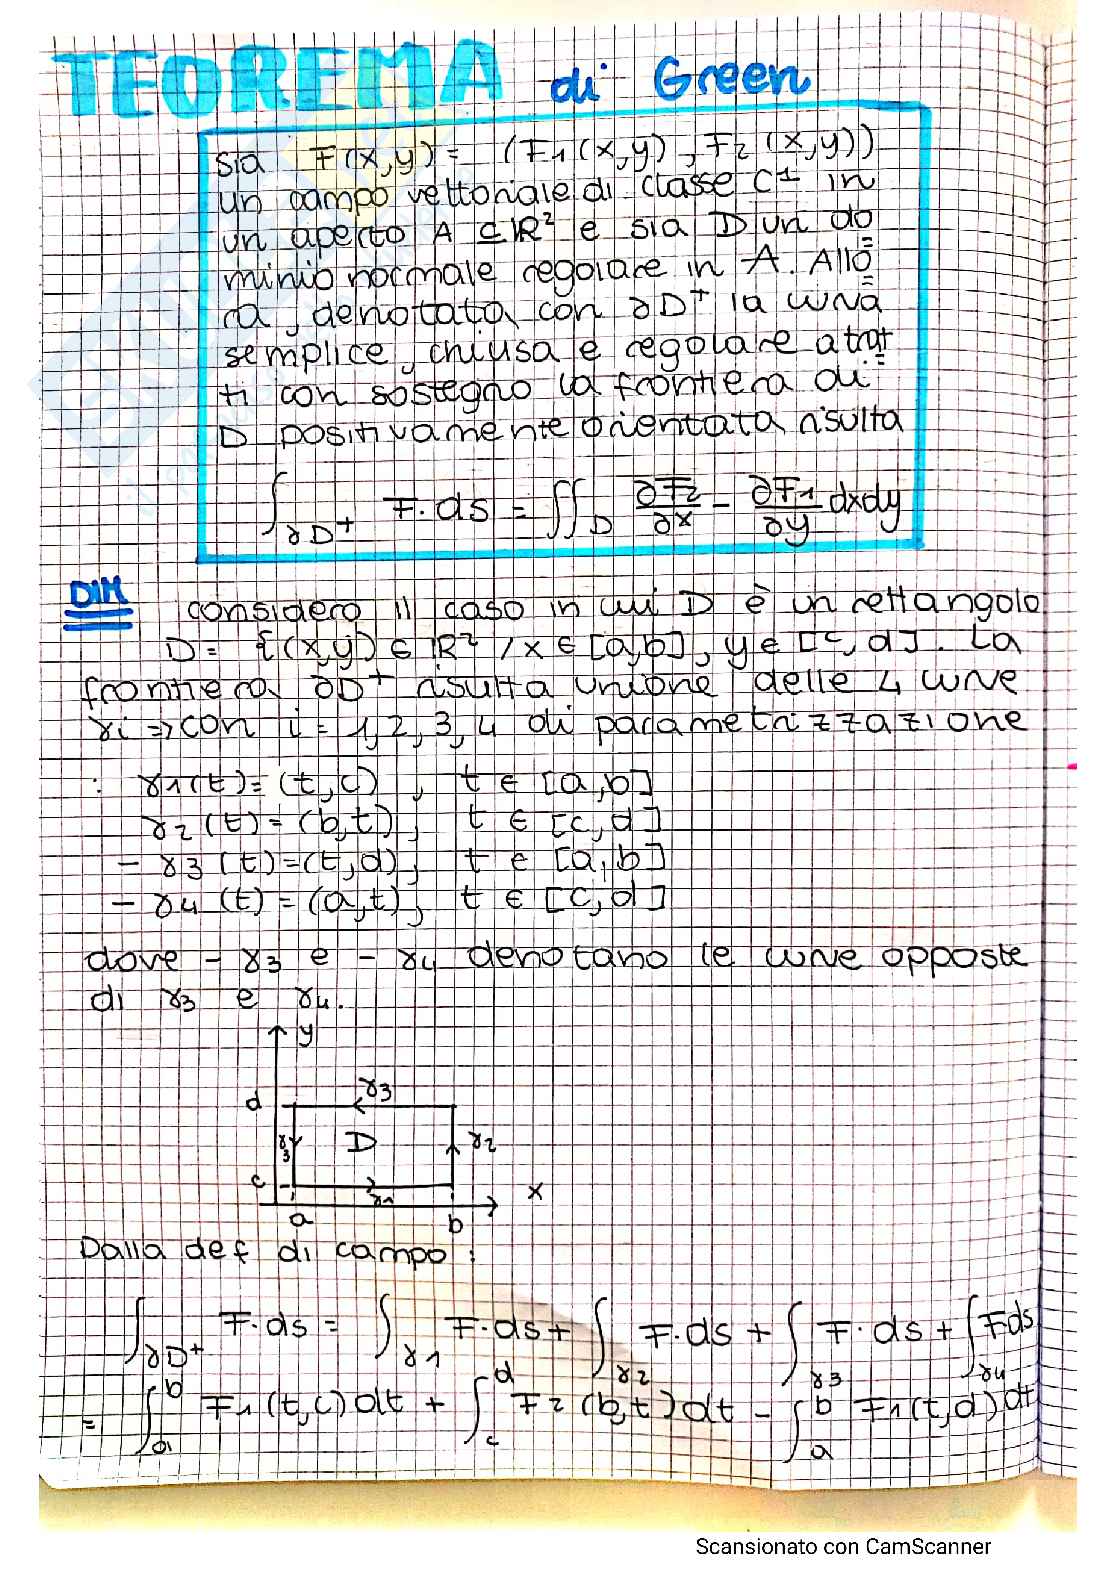 TEOREMA di Green
Sia F(x,y) = (F1(x,y), F2(x,y))
un campo vettoriale di classe C1 in
un aperto A ⊆ R² e sia D un do
minio normale regolare in A. Allo
ra, denotata con ∂D+ la curva
semplice, chiusa e regolare a trat
ti con sostegno la frontiera di
D positivamente orientata risulta
∫∂D+ F·ds = ∬D ∂F2/∂x - ∂F1/∂y dxdy
DIM
considero il caso in cui D è un rettangolo
D = {(x,y) ∈ R² / x ∈ [a,b], y ∈ [c,d]. La
frontiera ∂D+ risulta unione delle 4 curve
γi => con i = 1,2,3,4 di parametrizzazione
: γ1(t) = (t,c), t ∈ [a,b]
γ2(t) = (b,t), t ∈ [c,d]
- γ3(t) = (t,d), t ∈ [a,b]
- γ4(t) = (a,t), t ∈ [c,d]
dove - γ3 e - γ4 denotano le curve opposte
di γ3 e γ4.
y
d γ3
γ3 D γ2
c γ1 x
a b
Dalla def di campo :
∫∂D+ F·ds = ∫γ1 F·ds + ∫γ2 F·ds + ∫γ3 F·ds + ∫γ4 Fds
= ∫a^b F1(t,c)dt + ∫c^d F2(b,t)dt - ∫a^b F1(t,d)dt
Scansionato con CamScanner